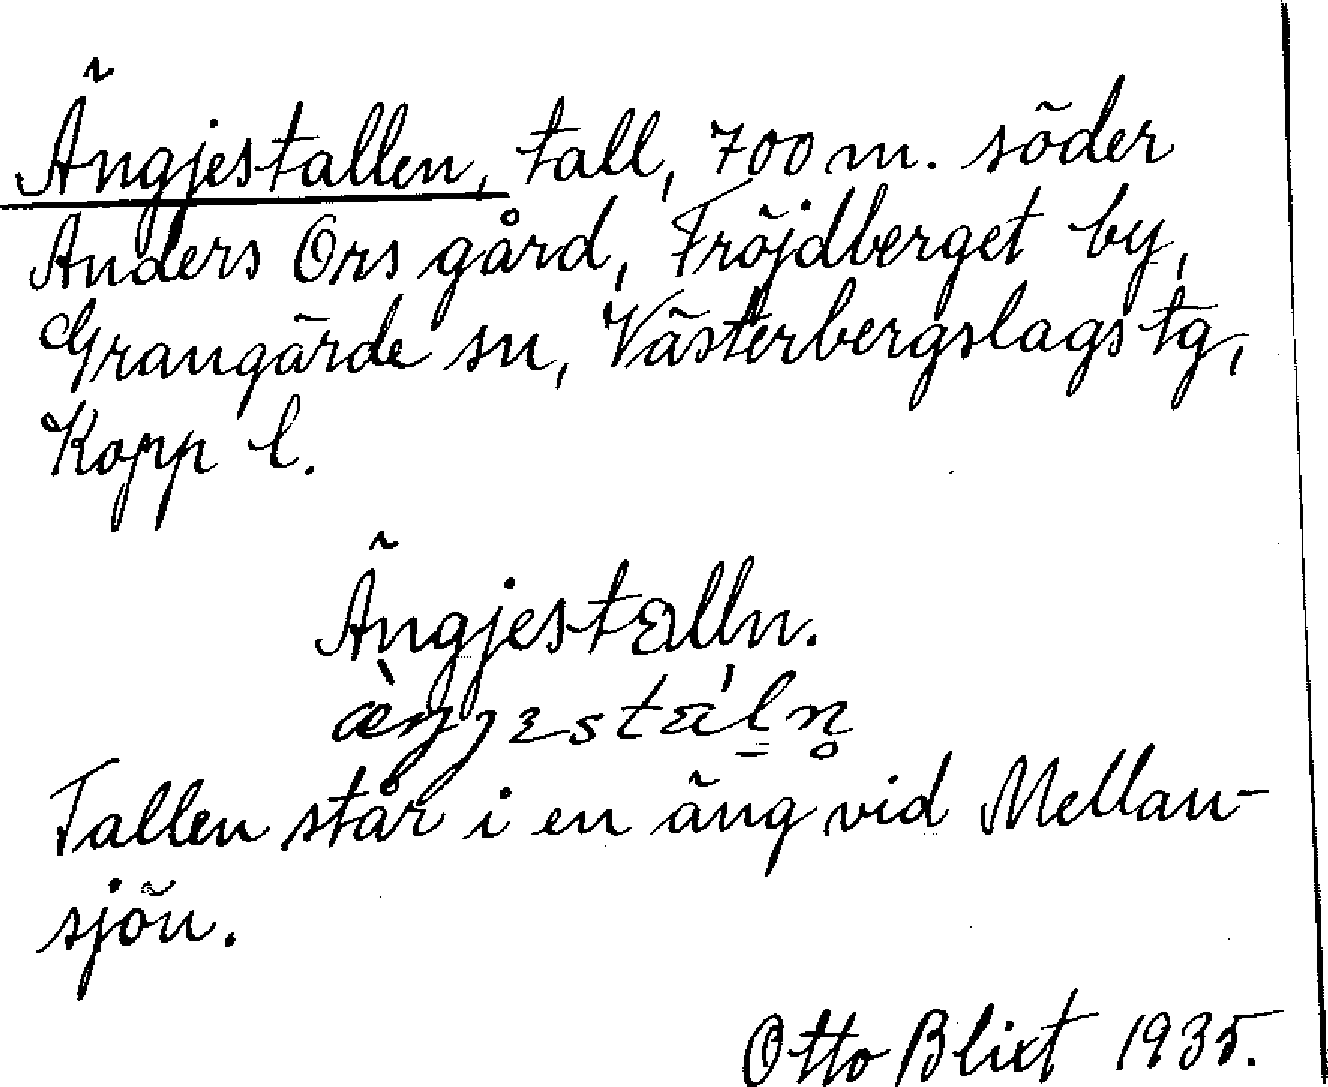 Ängjestallen, tall, 700 m. söder
Anders Ors gård, Fröjdberget by,
Grangärde sn, Västerbergslags tg,
Kopp l.
Ängjestalln.
Tallen står i en äng vid Mellan-
sjön.
Otto Blixt 1935.